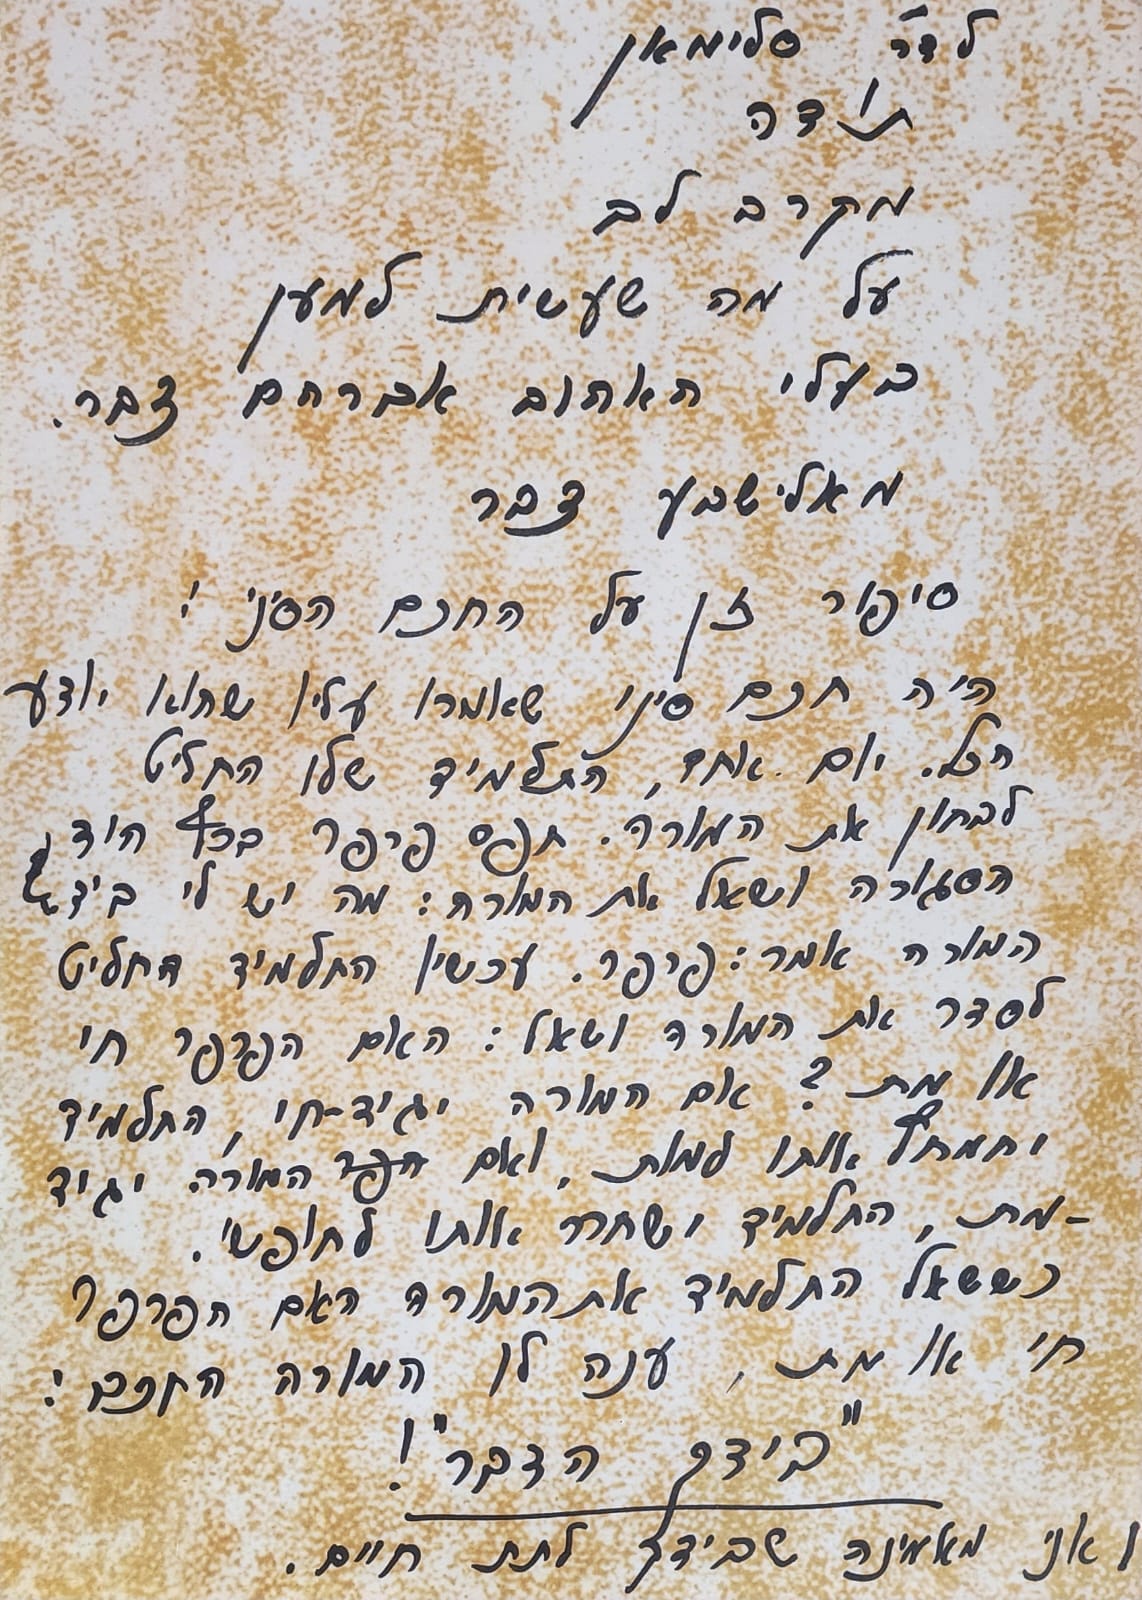 לדר׳ סלימאן
תודה
מקרב לב
על מה שעשית למען
בעלי האהוב אברהם צבר.
מאלישבע צבר
סיפור זן על החכם הסיני:
היה חכם סיני שאמרו עליו שהוא יודע
הכל. יום אחד, התלמיד שלו החליט
לבחון את המורה. תפס פרפר בכף היד
הסגורה ושאל את המורה: מה יש לי ביד?
המורה אמר: פרפר. עכשיו התלמיד החליט
לסדר את המורה ושאל: האם הפרפר חי
או מת? אם המורה יגיד-חי, התלמיד
ימחץ אותו למות, ואם המורה יגיד
-מת, התלמיד ישחרר אותו לחופשי.
כששאל התלמיד את המורה האם הפרפר
חי או מת, ענה לו המורה החכם:
"בידך הדבר"!
ואני מאמינה שבידך לתת חיים.